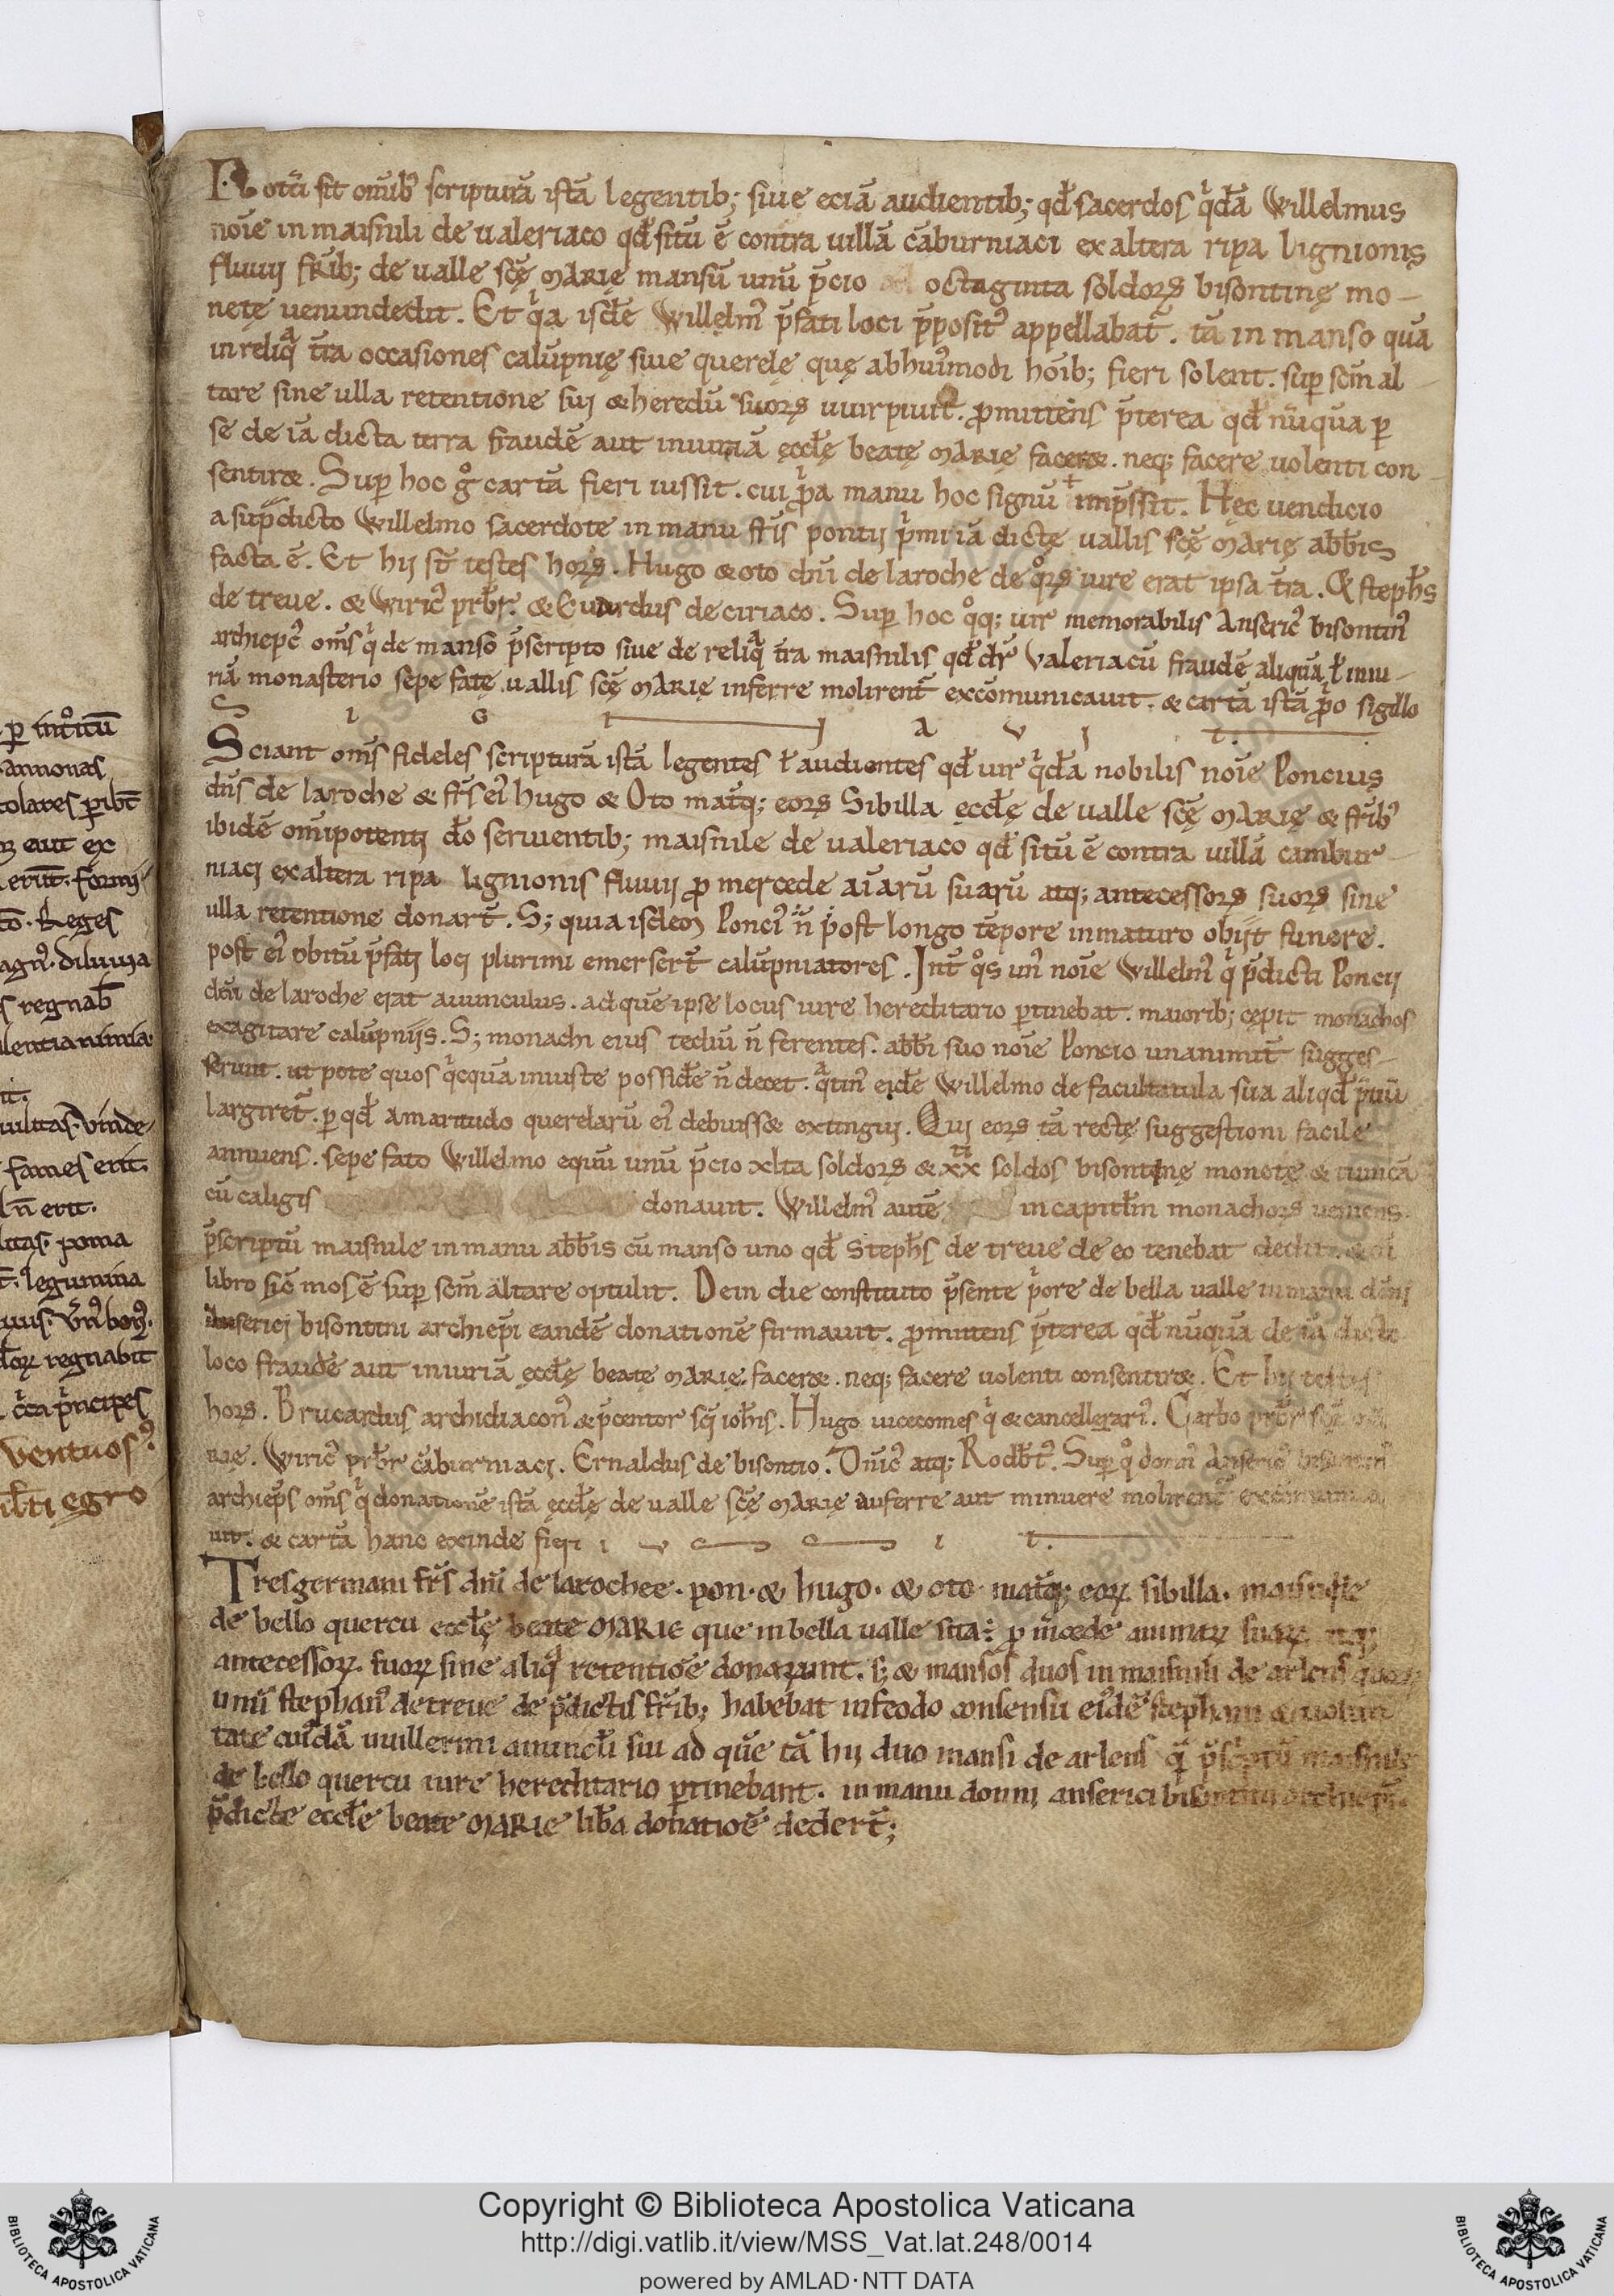 p int͛oitū
annonas
colares ꝑibt̄
eaut ex
erūt. formi
tō. Reges
agn᷒. diluuia
s regnab̄
lentia nimia.
it.
uulitas. vinde
fames erit.
l n̄ erit.
litas. poma
t̄. legumina
uus. vn᷒ bon᷒.
doꝝ regnabit
cͥca pͥncipes
ventuos᷒.
ib̄ti egro
Notū sit om̄ib᷒ scripturā istā legentib; siue eciā audientib; qđ sacerdos qͥdā Willelmus
noīe in maisnili de ualeriaco qđ sitū ē contra uillā cāburniaci ex altera ripa lignionis
fluuij fr̄ib; de ualle scę̄ MARIę mansū unū p̄cio octoginta soldoꝝ bisontinę mo-
netę uenundedit. Et qͥa isdē Willelm᷒ p̄fati loci p̄posit᷒ appellabat᷑. tā in manso quā
in reliqͣ t̄ra occasiones calūpnię siue querelę quę ab hui᷒modi hoīb; fieri solent. suꝑ scm̄ al
tare sine ulla retentione sui & heredū suoꝝ uuirpiuit. ꝓmittens p̄terea qđ nūquā ꝑ
se de iā dicta terra fraudē aut iniuriā ęccłę beatę MARIę facer&. neq; facere uolenti con
sentir&. Suꝑ hoc gͦ cartā fieri iussit. cui pͥa manu hoc signū + imp̄ssit. Hęc uendicio
a sup̄dicto Willelmo sacerdote in manu fr̄is pontij pͥmi iā dictę uallis scę̄ MARIę ab̄bis
facta ē. Et hij st̄ testes hoꝝ. Hugo & oto dn̄i de laroche de qͦꝝ iure erat ipsa t̄ra. & steph̄s
de treue. & Wiric᷒ prb̄r. & Euurdus de ciriaco. Suꝑ hoc qͦq; uir memorabilis Anseric᷒ bisontin᷒
archiepc᷒ om̄s qͥ de manso p̄scripto siue de reliqͣ t̄ra maisnilis qđ dr̄ Valeriacū fraudē aliquā ł iniu-
riā monasterio sepe fatę uallis scę̄ MARIę inferre molirent᷑ excōmunicauit. & cartā istā pͥo sigillo
S i G i l l a v i t.
Sciant om̄s fideles scripturā istā legentes ł audientes qđ uir qͥdā nobilis noīe Poncius
dn̄s de laroche & fr̄s ei᷒ hugo & Oto mat̄q; eoꝝ Sibilla ęccłę de ualle scę̄ MARIę & fr̄ib᷒
ibidē om̄ipotenti dō seruientib; maisnile de ualeriaco qđ sitū ē contra uillā cambur-
niaci ex altera ripa lignionis fluuij ꝓ mercede aīarū suarū atq; antecessoꝝ suoꝝ sine
ulla retentione donar̄t. S; quia isdem Ponci᷒ n̄ post longo tēpore inmaturo obijt funere.
post ei᷒ obitū p̄fati loci plurimi emerser̄t calūpniatores. Int̄ qͦs un᷒ noīe Willelm᷒ qͥ p̄dicti Poncij
dn̄i de laroche erat auunculus. ad quē ipse locus iure hereditario ꝑtinebat. maiorib; cępit monachos
exagitare calūpnijs. S; monachi eius tediū n̄ ferentes. ab̄bi suo noīe Poncio unanimit᷑ sugges-
serunt. ut pote quos qͥcquā iniuste possidē n̄ decet. qͣtin᷒ eidē Willelmo de facultatula sua aliqđ p̄tiū
largiret᷑. ꝑ qđ amaritudo querelarū ei᷒ debuiss& extingui. Qui eoꝝ tā rectę suggestioni facile
annuens. sepe fato Willelmo equū unū p̄cio xlta soldoꝝ & xx soldos bisontinę monetę & tunicā
cū caligis donauit. Willelm᷒ autē in capitłm monachoꝝ ueniens.
p̄scriptū maisnile in manu ab̄bis cū manso uno qđ Steph̄s de treue de eo tenebat dedit.
libro sic̄ mos ē suꝑ scm̄ altare optulit. Dein die constituto p̄sente pͥore de bella ualle in manu dōni
Anserici bisontini archiepi eandē donationē firmauit. ꝓmittens p̄terea qđ nūquā de iā dicto
loco fraudē aut iniuriā ęccłę beatę MARIę facer&. neq; facere uolenti consentir&. Et hij testes
hoꝝ. Brucardus archidiacon᷒ & p̄centor sc̄i ioh̄is. Hugo uicecomes qͥ & cancellerari᷒. Garbo prb̄r scę̄ ma
rię. Wiric᷒ prb̄r cāburniaci. Ernaldus de bisontio. Om̄ic᷒ atq; Rodb̄t᷒. Suꝑ qͦ domn᷒ Anseric᷒ bisontin᷒
archiep̄s om̄s qͥ donationē istā ęccłę de ualle scę̄ MARIę auferre aut minuere molirent᷑ excōmunica
uit. & cartā hanc exinde fieri i v s s i t.
Tres germani fr̄s dn̄i de larochee. pon. & hugo. & oto mat̄q; eoꝝ sibilla. maisnile
de bello quercu eccłę beate MARIE que in bella ualle sita: ꝓ m̄cede animaꝝ suaꝝ atq;
antecessoꝝ suoꝝ sine aliqͣ retentiōe donarunt. s; & mansos duos in maisnili de arlens quoꝝ
unū stephan᷒ de treue de p̄dictis fr̄ib; habebat in feodo consensu ei᷒dē stephani & uolun
tate cuidā uuillermi auuncłi sui ad quē tā hij duo mansi de arlens qͣ p̄scriptū maisnile
de bello quercu iure hereditario ꝑtinebant. in manu donni anserici bisontini archiepi.
p̄dicte eccłe beate MARIE lib̄a donatiōe deder̄t;
Copyright © Biblioteca Apostolica Vaticana
http://digi.vatlib.it/view/MSS_Vat.lat.248/0014
powered by AMLAD·NTT DATA
BIBLIOTECA APOSTOLICA VATICANA
BIBLIOTECA APOSTOLICA VATICANA